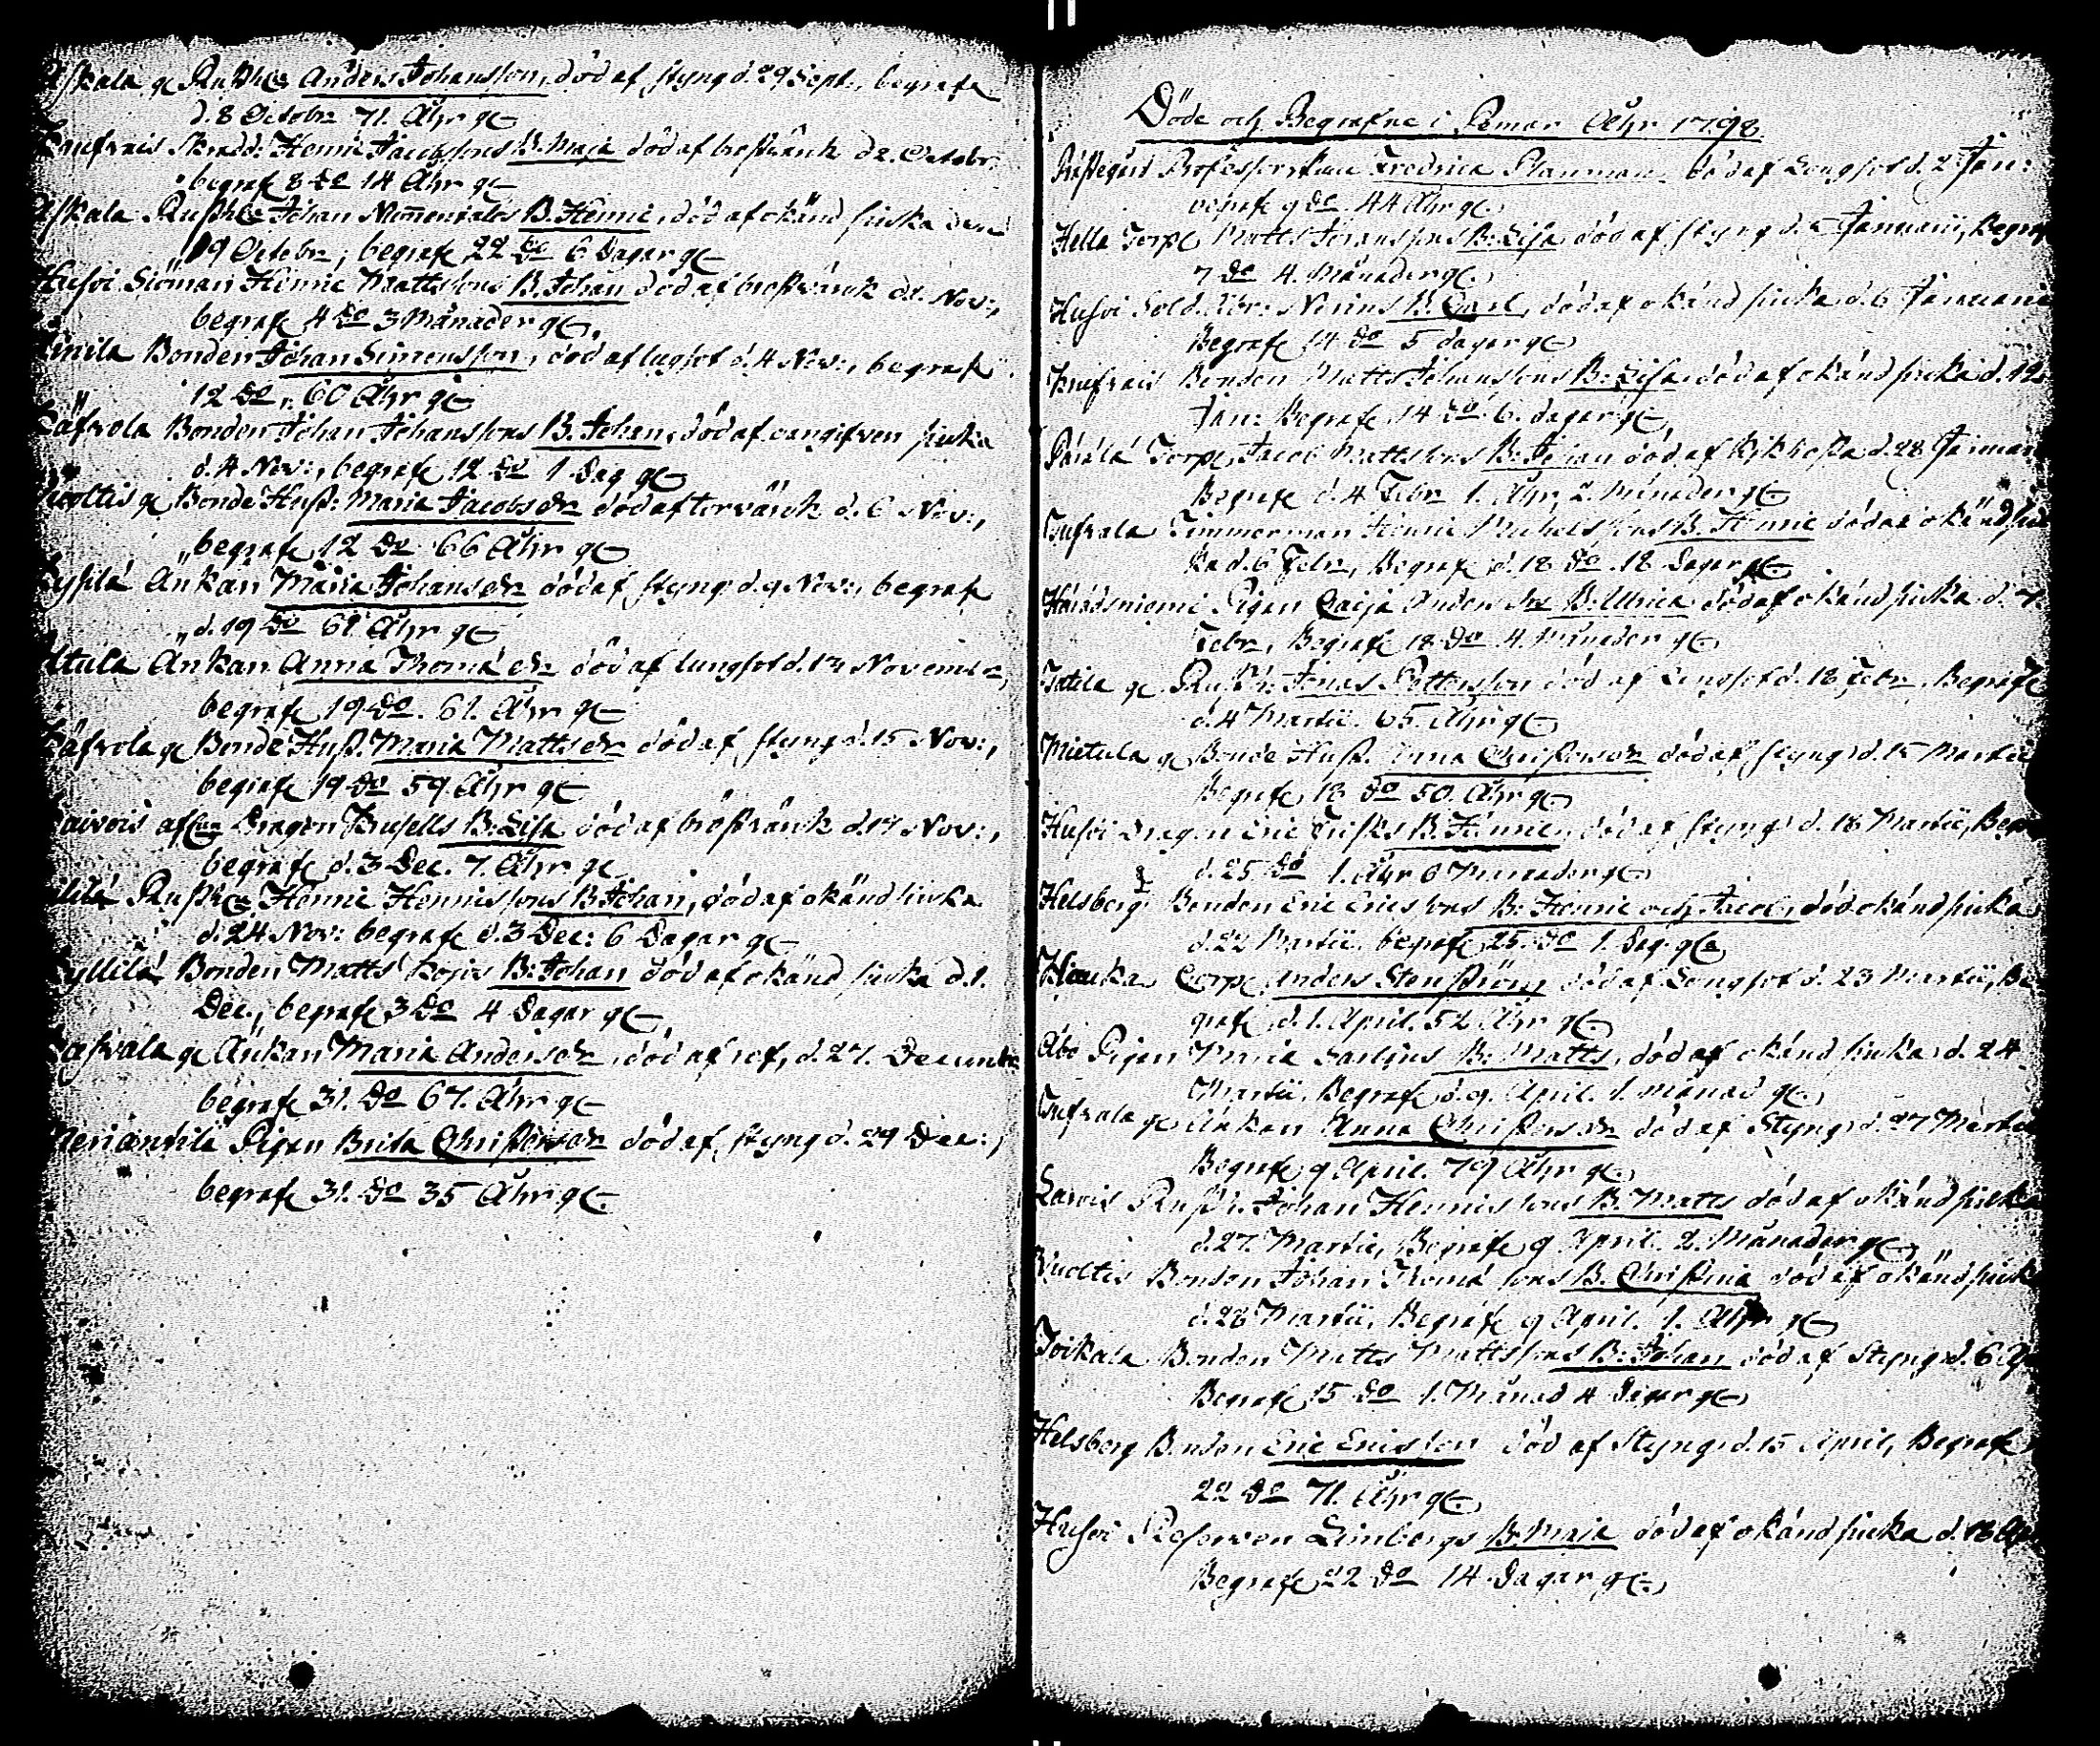 Askala g. Rusth: Anders Johansson, död af styng d. 29 Sept:, begrafs
d. 8 Octobr 71. Åhr g
Skradd: Henric Jacobssons B. Maja död af bröstvärck d 2. Octobr,
begrafs 8 do 14 Åhr g
Askala Rusth: Johan B. Henric, död af okänd siuka den
19 Octobr, begrafs 22 do 6 Dagar g
Husvi Siöman Henric Mattssons B. Johan död af bröstvärck d 1. Nov:,
begrafs 4 do 3 Månader g
Bonden Johan Simonsson, död af lungsot d. 4 Nov:, begrafs
12 do, 60 Åhr g
Bonden Johan Johanssons B. Johan, död af oangifven siuka
d. 4 Nov:, begrafs 12 do 1 Dag g
Vuoltis g Bonde Hust: Maria Jacobsdr död af torrvärck d. 6 Nov:,
begrafs 12 do 66 Åhr g
Änkan Maria Johansdr död af styng d. 9 Nov:, begrafs
d. 19 do 61 Åhr g
Änkan Anna Thomædr död af lungsot d. 14 Novembr,
begrafs 19 do. 61. Åhr g
g Bonde Hust. Maria Mattsdr död af styng d. 15 Nov:,
begrafs 19 do 59. Åhr g
Dragon Krusells B: Lisa död af bröstvärck d. 17 Nov:,
begrafs d. 3 Dec. 7. Åhr g
Rusth: Henric Henrissons B Johan, död af okänd siuka
d. 24 Nov: begrafs d. 3 Dec: 6 Dagar g
Bonden Matts B: Johan död af okänd siuka d. 1.
Dec., begrafs 3 do 4 Dagar g
g Änkan Maria Andersdr, död af rof, d. 27. Decembr
begrafs 31. do 67. Åhr g
Pigan Brita Christersdr död af styng d. 29 Dec:,
begrafs 31. do 35 Åhr g
Döde och Begrafne i Pemar Åhr 1798.
Prästegård Professorskan Fredrica Planman död af Lungsot d. 2 Jan:
begrafs 9 do. 44 Åhr g
Hella Torp: Matts Johanssons B: Lisa död af styng d. Januarii, Begraf
7 do 4. Månader g
Husvi Sold. B. Carl, död af okänd siuka d. 6 Januarii
Begrafs 14 do 5 dagar g
Bonden Matts Johanssons B: Lisa död af okänd siuka d. 12
Jan: Begrafs 14 do 6. dagar g
Torp: Jacob Mattssons B: Johan död af kikhosta d. 28 Januar
Begrafs d. 4 Febr 1. Åhr, 2. Månader g
Timmerman Henric Michelssons B. Henric död af okänd siu
ka d. 6 Febr, Begrafs d. 18 do. 18 Dagar g
Pigan Caisa Andersdr B: Ulrica död af okänd siuka d. 7
Febr, Begrafs 18 do 4. Månader g
g Rusth: Jonas Pettersson död af Lungsot d. 18 Febr. Begrafs
d. 4 Martii. 65. Åhr g
Mietula g Bonde Hust. Anna Christersdr död af styng d. 15 Martii
Begrafs 18 do 50. Åhr g
Husvi Dragon Eric Frisks B. Henric, död af styng d. 18 Martii, Begr
d. 25 do 1. Åhr 6 Månader g
Helsberg Bonden Eric Ericssons B: Henric och Jacob, död okänd siuka
d. 22 Martii. begrafs 25 do 1. Dag. g
Corp: Anders Stenström död af Lungsot d. 23 Martii, Be
grafs d. 1. April. 52 Åhr g
Åbo Pigan Maria B: Matts, död af okänd siuka d. 24
Martii, Begrafs d. 9. April. 1. Månad g
g Änkan Anna Christersdr död af Styng d. 27 Martii
Begrafs 9 April. 79 Åhr g
Rusth: Johan Henrissons B. Matts död af okänd siuka
d. 27. Martii, Begrafs 9 April. 2. Månader g
Vuoltis Bonden Johan Thomæ sons B. Christina död af okänd siuk
d. 28 Martii, Begrafs 9 April. 1. Åhr g
Toikala Bonden Matts Mattssons B: Johan död af Styng d. 6 Ap
Begrafs 15 do 1. Månad 4 dagar g
Helsberg Bonden Eric Ericsson död af Styng d. 15 April, Begrafs
22 do 71. Åhr g
Husvi Reserven Limbergs B: Maja död af okänd siuka d. 18 Apr
Begrafs 22 do 14. Dagar g